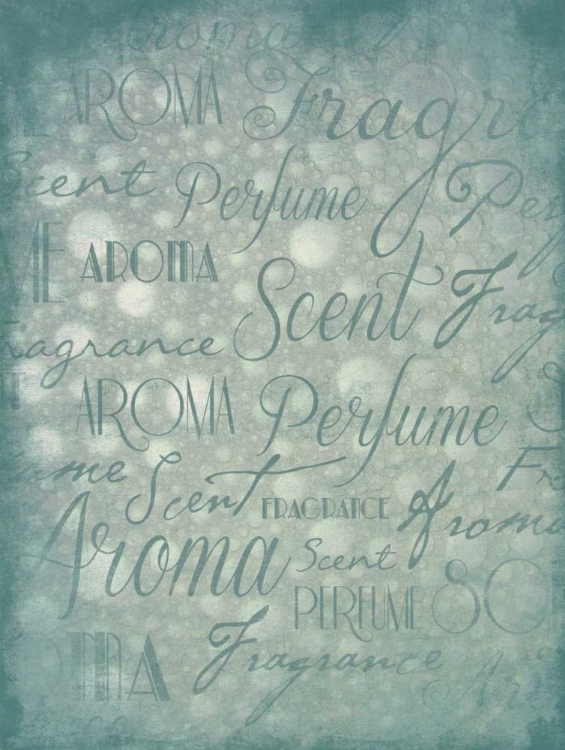 Aroma
AROMA Fragra
Scent Perfume Per
ME AROMA
Scent Frag
ragrance
AROMA Perfume
me Scent Fr
FRAGRANCE Aroma
Aroma Scent
PERFUME SC
MA Fragrance